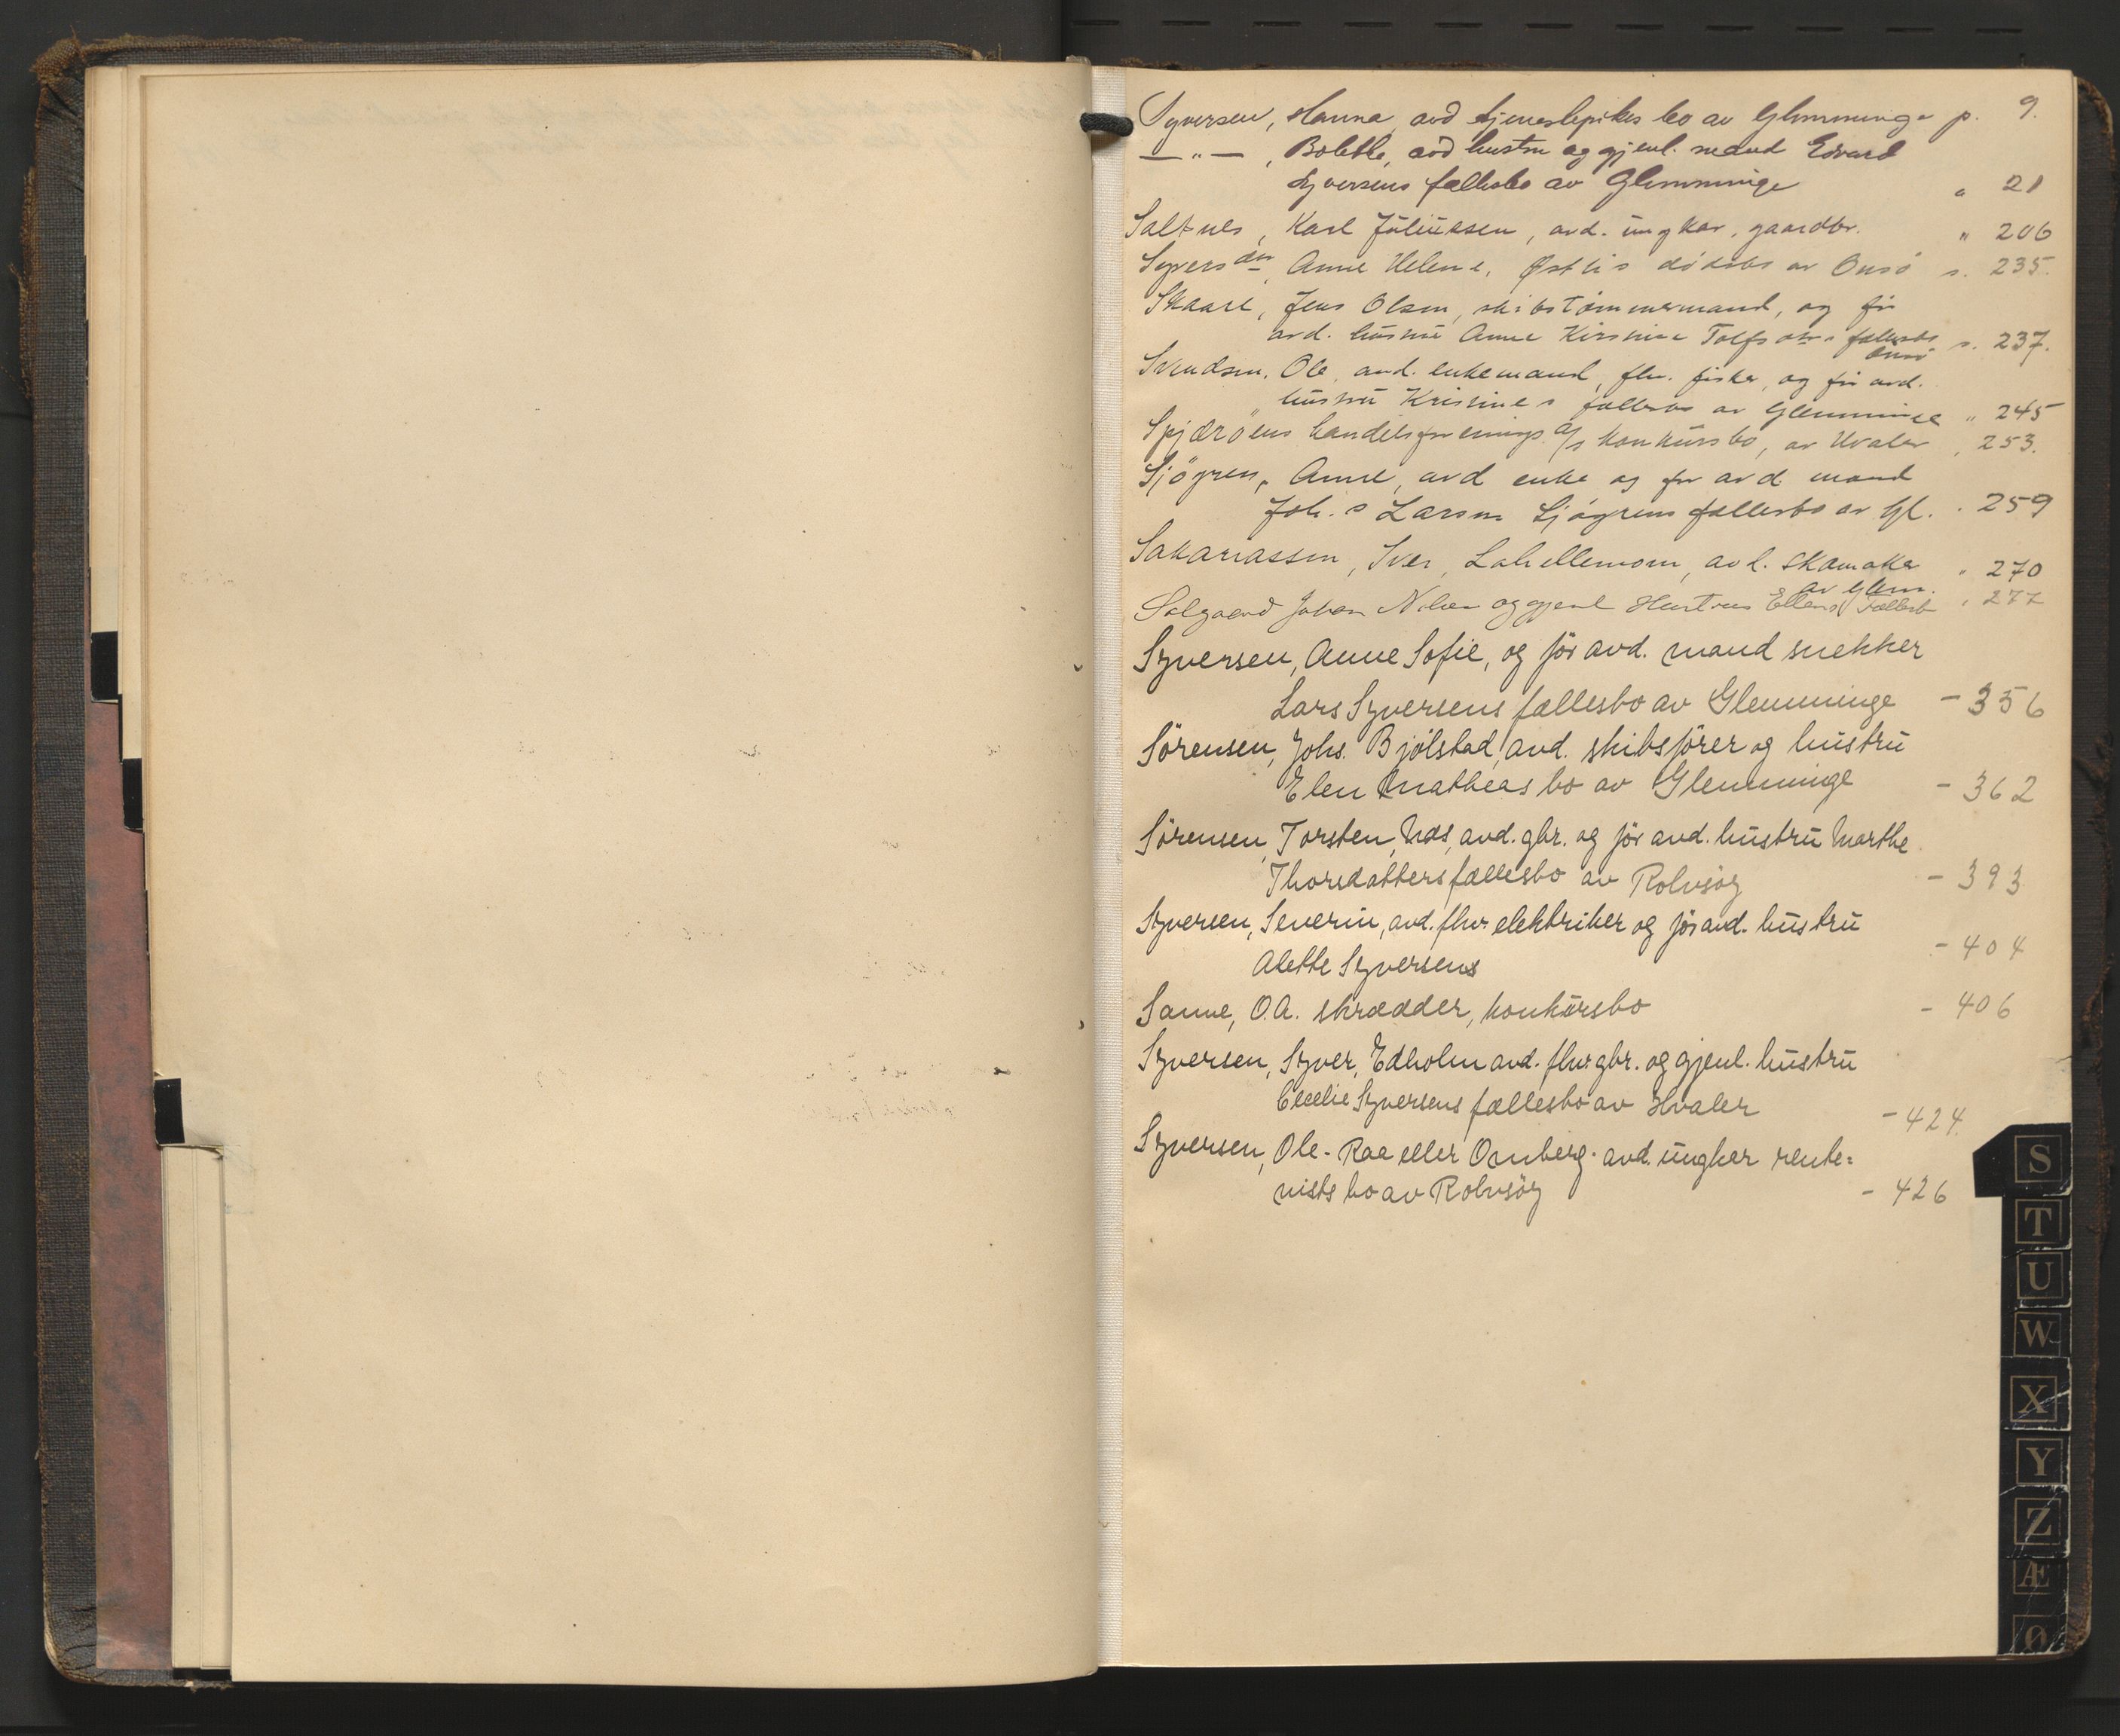 Syversen, Hanna, avd tjenestepikes bo av Glemminge p. 9.
— " — , Bolette, avd hustru og gjenl. mand Edvard
Syversens fællesbo av Glemminge " 21
Saltnes, Karl Juliussen, avd. ungkar, gaardbr. " 206
Syversdtr, Anne Helene, Østlis dödsbo av Onsö s. 235.
Skaare, Jens Olsen, skibstömmermand, og för
avd. hustru Anne Kirstine Tolfs fællesbo s. 237.
Onsö
Svendsen, Ole, avd. enkemand, fhv. fisker, og för avd.
hustru Kristines fællesbo av Glemminge " 245
Spjærøens handelsforenings A/S konkursbo, av Hvaler " 253.
Sjögren, Anne, avd enke og før avd mand
Joh.s Larsen Sjögrens fællesbo av Gl. " 259
Sakariassen, Iver, avd. skomaker " 270
av Glem.
Solgaard Johan Nilsen og gjenl Hustrus Ellens Fællesb " 277
Syversen, Anne Sofie, og för avd. mand snekker
Lars Syversens fællesbo av Glemminge - 356
Sörensen, Johs. Bjölstad, avd. skibsförer og hustru
Elen Matheas bo av Glemminge - 362
Sörensen, Torsten, Nds, avd. gbr. og för avd. hustru Marthe
Thorsdatters fællesbo av Rolvsöy - 393
Syversen, Severin, avd. fhv. elektriker og för avd. hustru
Alette Syversens - 404
Sanne, O.A. skrædder, konkursbo - 406
Syversen, Syver, Edholm avd. fhv. gbr. og gjenl. hustru
Cecelie Syversens fællesbo av Hvaler - 424.
Syversen, Ole - Raa eller Ornberg - avd. ungkar rente=
nists bo av Rolvsöy - 426
S
T
U
W
X
Y
Z
Æ
Ø